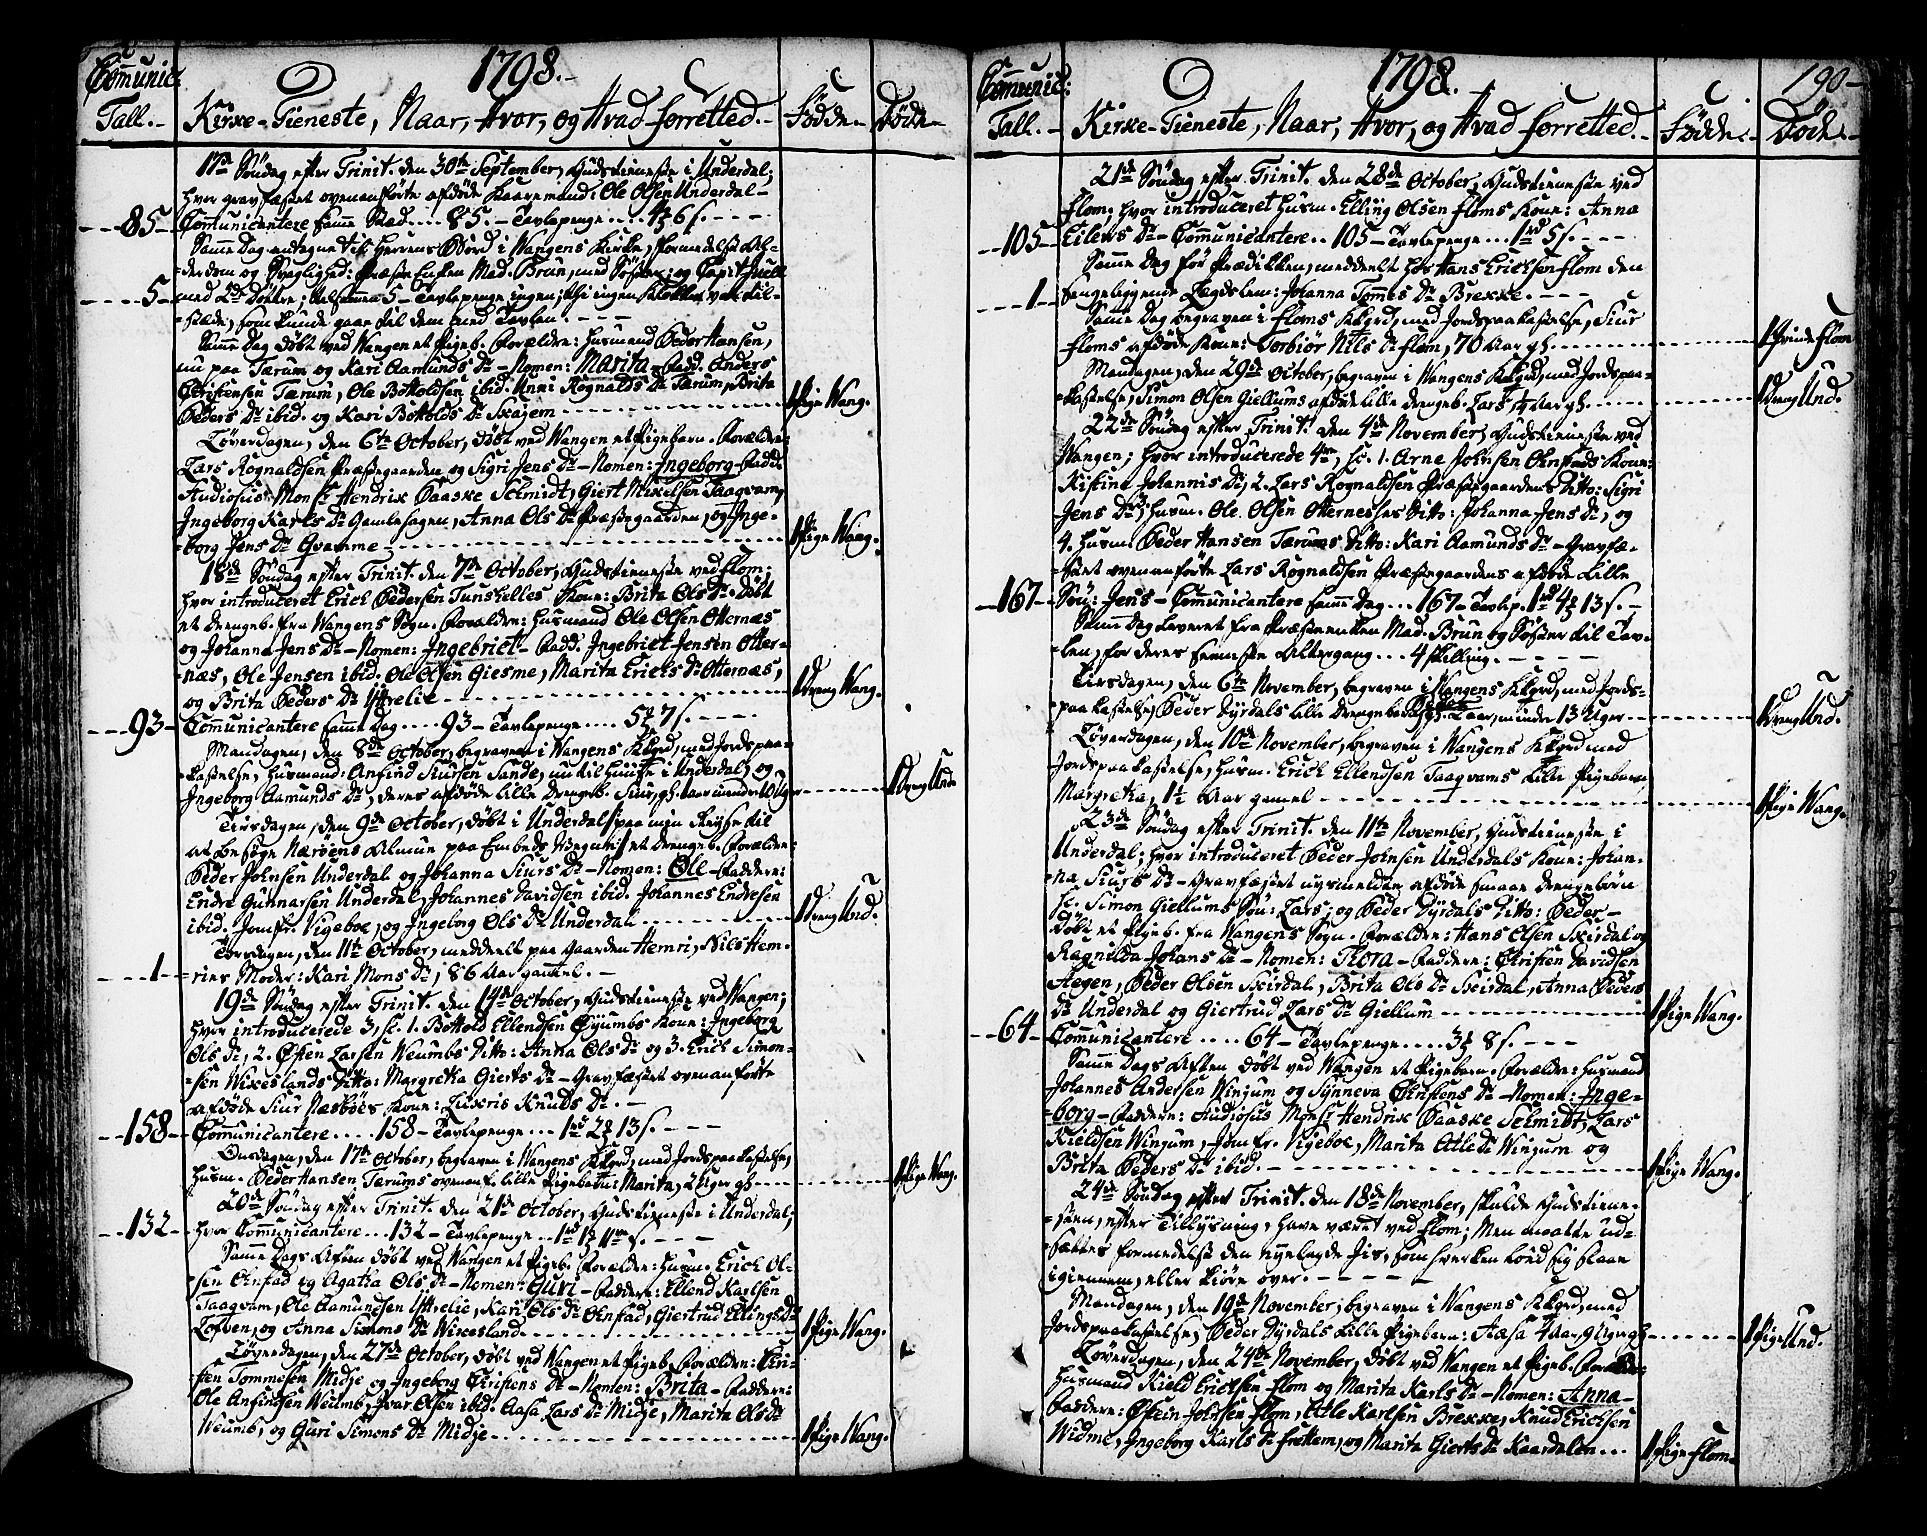 Comunic:
Tall.-
1798.-
Kirke-Tieneste, Naar, Hvor, og Hvad forretted.-
Fødde-
Døde-
17de Søndag efter Trinit. den 30te September, Gudstieneste i Underdal;
hvor gravfæstet ovenanførte afdøde Kaaremand: Ole Olsen Underdal-
85- Comunicantere samme Stad.... 85- Tavlepenge.... 4 6 s.
Samme Dag antagne til Herrens Bord i Wangens Kirke, formedelst Al-
-derdom og Svaglighed: Præste Enken Mad. Brun, med Søster; og Capit.
5- med 2de Døttre; tilsammen 5- Tavlepenge ingen; thi ingen var til-
-stæde, som kunde gaae til dem med Tavlen.
Samme Dag døbt ved Wangen et Pigeb. Forældre: Husmand Peder Hansen,
nu paa Tærum og Kari Aamunds Dr- Nomen: Marita- Fadd. Anders
Christensen Tærum, Ole Botholdsen ibid. Anni Rognalds Dr Tærum, Brita
Peders Dr ibid. og Kari Botholds Dr Skajem
1 Pige Wang.
Løverdagen, den 6te October, døbt ved Wangen et Pigebarn. Forældre:
Lars Rognaldsen Præstegaarden og Sigri Jens Dr- Nomen: Ingeborg- Fadd.
Studiosus Monsr Hendrik Daaske Schmidt, Giert Mikelsen Taagvam,
Ingeborg Karls Dr Gamlehagen, Anna Ols Dr Præstegaarden, og Inge-
-borg Jens Dr Qvamme
1 Pige Wang.
18de Søndag efter Trinit. den 7de October, Gudstieneste ved Flom;
hvor introduceret Erich Pedersen Tunshelles Kone: Brita Ols Dr- Døbt
et Drengeb. fra Wangens Sogn. Forældre: Husmand Ole Olsen Otternæs
og Johanna Jens Dr- Nomen: Ingebriet- Fadd. Ingebriet Jensen Otter-
næs, Ole Jensen ibid. Ole Olsen Giesme, Marita Erichs Dr Otternæs,
og Brita Peders Dr Yttrelie
1 Dreng Wang.
93- Communicantere samme Dag.... 93- Tavlepenge.... 5 7 s.
Mandagen, den 8de October, begraven i Wangens Kkgrd, med Jordspaa-
-kastelse, Husmand: Anfind Siursen Sande, nu til Huuse i Underdal, og
Ingeborg Aamunds Dr, deres afdøde lille Drengeb. Siur, gl. 1 aar minder 10 Uger
1 Dreng Und.
Tirsdagen, den 9de October, døbt i Underdal /paa min Reyse til
at besøge Nærøens Almue paa Embeds Vegne/ et Drengeb. Forældre:
Peder Johnsen Underdal og Johanna Siurs Dr- Nomen: Ole- Faddere:
Endre Gunnarsen Underdal, Johannes Davidsen ibid. Johannes Endresen
ibid. Jomfr. Vigeboe, og Ingeborg Ols Dr Underdal
1 Dreng Und.
Torsdagen, den 11te October, meddeelt paa Gaarden Hemri, Nils Hem-
1- ries Moder: Kari Mons Dr, 86 Aar gammel.-
19de Søndag efter Trinit. den 14de October, Gudstieneste ved Wangen;
hvor introducerede 3, sc. 1. Bottold Ellendsen Øyumbs Kone: Ingeborg
Ols Dr, 2. Østen Larsen Weumbs Ditto: Anna Ols Dr og 3. Erich Simon-
-sen Wikeslands Ditto: Margretha Gierts Dr- Gravfæstet ovenanførte
afdøde Siur Næsbøes Kone: Zidris Knuds Dr.-
158- Communicantere.... 158- Tavlepenge... 1rd 2 13 s.
Onsdagen, den 17de October, begraven i Wangens Kkgrd, med Jordspaakastelse,
Husm. Peder Hansen Tærums ovenanf. lille Pigebarn: Marita, 2 Uger gl.
1 Pige Wang.
20de Søndag efter Trinit. den 21de October, Gudstieneste i Underdal;
132- hvor Communicantere... 132- Tavlepenge... 1rd 1 11 s.
Samme Dags Aften døbt ved Wangen et Pigeb. Forældre: Husm. Erich Ol-
-sen Ohnstad og Agatha Ols Dr- Nomen: Guri- Faddere: Ellend Karlsen
Taagvam, Ole Aamundsen Yttrelie, Kari Ols Dr Ohnstad, Giertrud Ellings Dr
Loften, og Anna Simons Dr Wikesland
1 Pige Wang.
Løverdagen, den 27de October, døbt ved Wangen et Pigeb. Forældre: Chri-
sten Tommesen Midje og Ingeborg Christens Dr- Nomen: Brita- Faddere:
Ole Anfindsen Weumb, Ivar Olsen ibid. Aasa Lars Dr Midje, Marita Ols Dr
Weumb, og Guri Simons Dr Midje
1 Pige Wang.
Comunic:
Tall.-
1798.
190-
Kirke-Tieneste, Naar, Hvor, og Hvad forretted.-
Fødde-
Døde-
21de Søndag efter Trinit. den 28de October, Gudstieneste ved
Flom; hvor introduceret Husm. Elling Olsen Floms Kone: Anna
105- Eilerts Dr- Communicantere.. 105- Tavlepenge... 1rd 5 s.
Samme Dag før Prædikken, meddeelt hos Hans Erichsen Flom den
1- sengeliggende Legdslem: Johanna Tommes Dr Brekke.
Samme Dag begraven i Floms Kkgrd, med Jordspaakastelse, Siur
Floms afdøde Kone: Torbiør Nils Dr Flom, 70 Aar gl.
1 Qvinde Flom
Mandagen, den 29de October, begraven i Wangens Kkgrd, med Jordspaa-
-kastelse, Simon Olsen Giellums afdøde lille Drengeb. Lars, Aar gl.
1 Dreng Und.
22de Søndag efter Trinit. den 4de November, Gudstieneste ved
Wangen; hvor introducerede 4re, sc. 1. Arne Johnsen Ohnstads Kone:
Kistina Johannis Dr, 2. Lars Rognaldsen Præstegaardens Ditto: Sigri
Jens Dr, 3. Husm. Ole Olsen Otternesses Ditto: Johanna Jens Dr, og
4. Husm. Peder Hansen Tærums Ditto: Kari Aamunds Dr- Gravfæ-
-stet ovenanførte Lars Rognaldsen Præstegaardens afdøde Lille
167- Søn: Jens- Comunicantere samme Dag... 167- Tavlep. 1rd 4 13 s.
Samme Dag leveret fra Præsteenken Mad. Brun og Søster til Tav-
-len, for deres seeneste Altergang... 4 skilling.
Tirsdagen, den 6te November, begraven i Wangens Kkgrd, med Jords-
paakastelse, Peder Dyrdals lille Drengebarn: 2 aar, minder 13 Uger
1 Dreng Und.
Løverdagen, den 10de November, begraven i Wangens Kkgrd med
Jordspaakastelse, Husm. Erich Ellendsen Taagvams Lille Pigebarn
Margretha, 1½ Aar gamel
1 Pige Wang.
23de Søndag efter Trinit. den 11te November, Gudstieneste i
Underdal; hvor introduceret Peder Johnsen Underdals Kone: Johan-
na Siurs Dr- Gravfæstet nysmeldte afdøde smaae Drengebørn
sc. Simon Giellums Søn: Lars; og Peder Dyrdals Ditto: Peder-
Døbt et Pigeb. fra Wangens Sogn. Forældre: Hans Olsen Skirdal og
Ragnilda Johans Dr- Nomen: Thora- Faddere: Christen Davidsen
Stegen, Peder Olsen Skirdal, Brita Ols Dr Skirdal, Anna Peders
Dr Underdal og Giertrud Lars Dr Giellum
1 Pige Wang.
64- Communicantere.... 64- Tavlepenge.... 3 8 s.
Samme Dags Aften døbt ved Wangen et Pigebarn. Forældre: Husmand
Johannes Andersen Winjum og Synneva Christens Dr- Nomen: Inge-
-borg- Faddere: Studiosus Monsr Hendrik Daaske Schmidt, Lars
Kieldsen Winjum, Jomfr. Vigeboe, Marita Atle Dr Winjum og
Brita Peders Dr ibid.
1 Pige Wang.
24de Søndag efter Trinit. den 18de November, skulde Gudstiene-
-sten, efter Tillysning, have været ved Flom; Men maatte ud-
-sættes formedelst den nyelagde Iis, som hverken lod sig slaae
igiennem, eller kiøre over.
Mandagen, den 19de November, begraven i Wangens Kkgrd, med
Jordspaakastelse, Peder Dyrdals Lille Pigebarn: Aasa 4 Aar 9 Uger gl.
1 Pige Und.
Løverdagen, den 24de November, døbt ved Wangen et Pigeb. Forældre:
Husmand Kield Erichsen Flom og Marita Karls Dr- Nomen: Anna-
Faddere: Østein Johnsen Flom, Atle Karlsen Brekke, Knud Erichsen
Widme, Ingeborg Karls Dr Frettem, og Marita Gierts Dr Kaardalen...
1 Pige Flom.